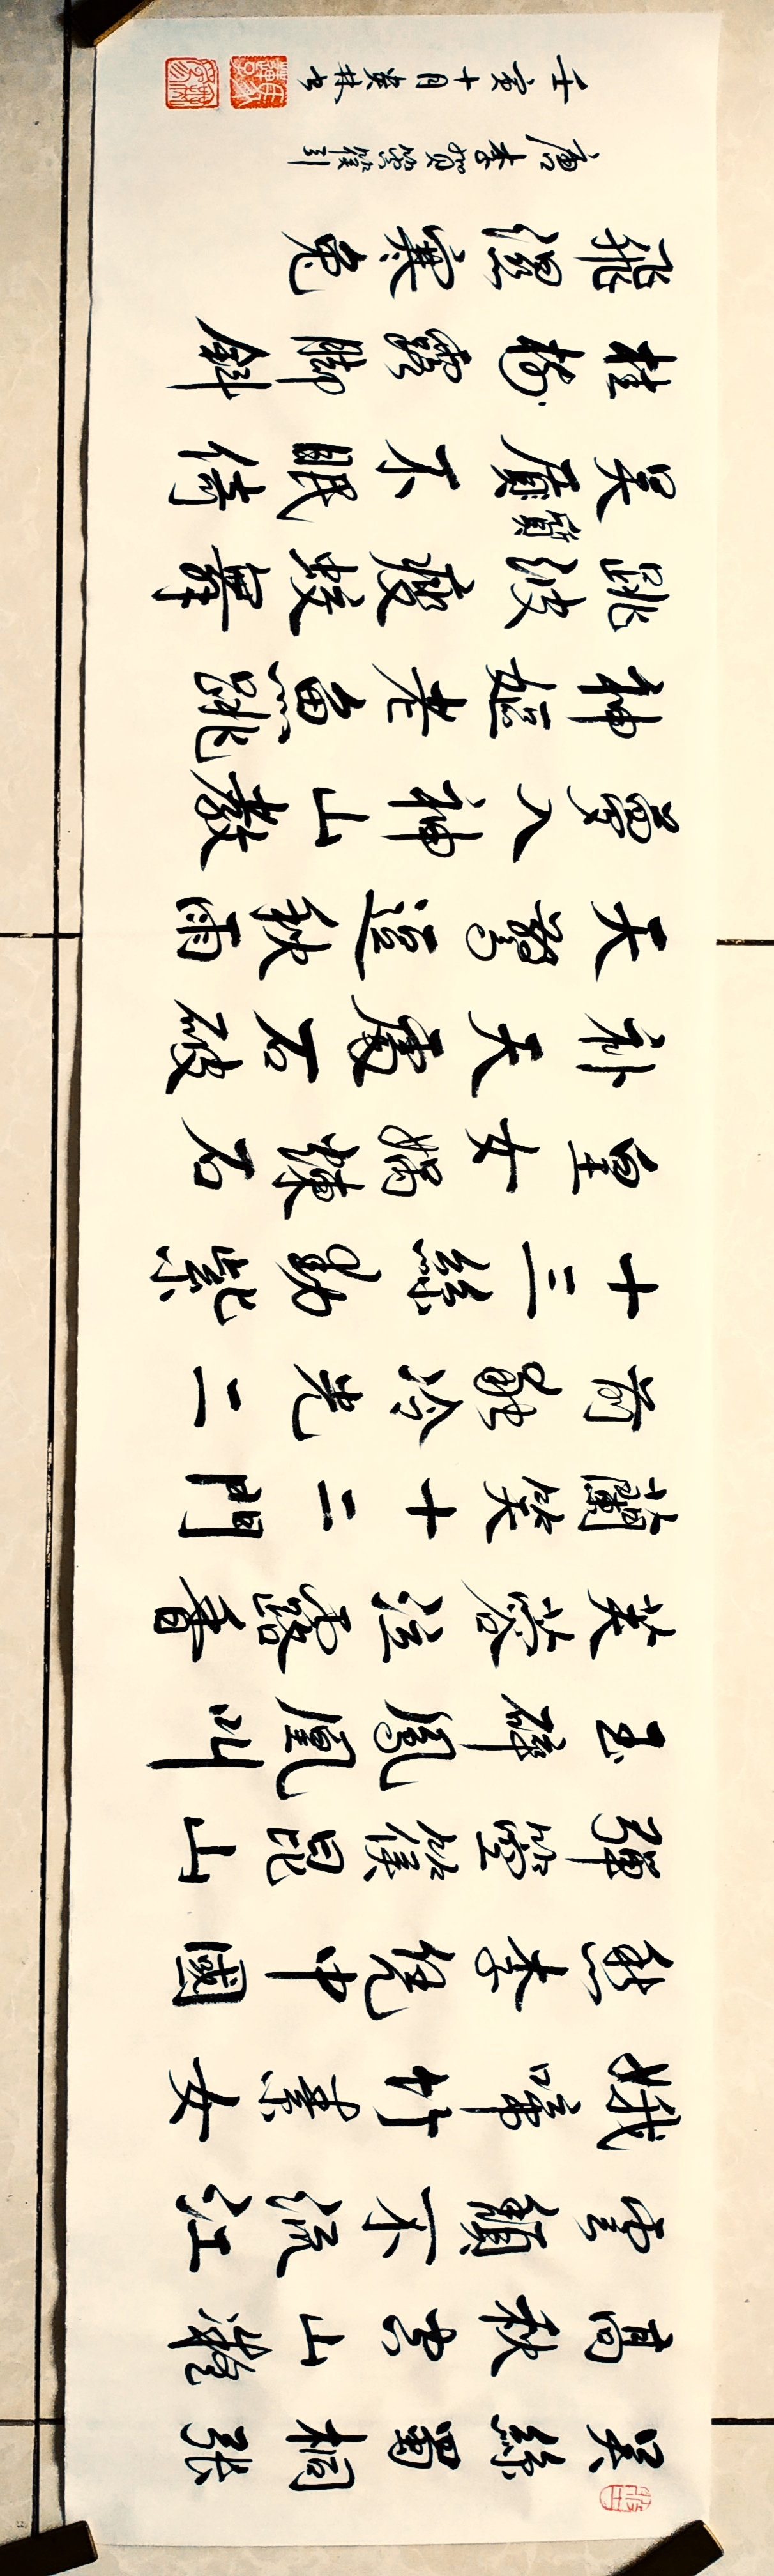 吴絲蜀桐張
高秋空山凝
雲頹不流江
娥啼竹素女
愁李凭中國
彈箜篌昆山
玉碎鳳凰叫
芙蓉泣露香
蘭笑十二門
前融冷光二
十三絲動紫
皇女媧煉石
补天處石破
天驚逗秋雨
夢入神山教
神嫗老魚跳
跳波瘦蛟舞
吴質不眠倚
桂樹露脚斜
飛濕寒兔
唐李賀箜篌引
壬寅十月英林書